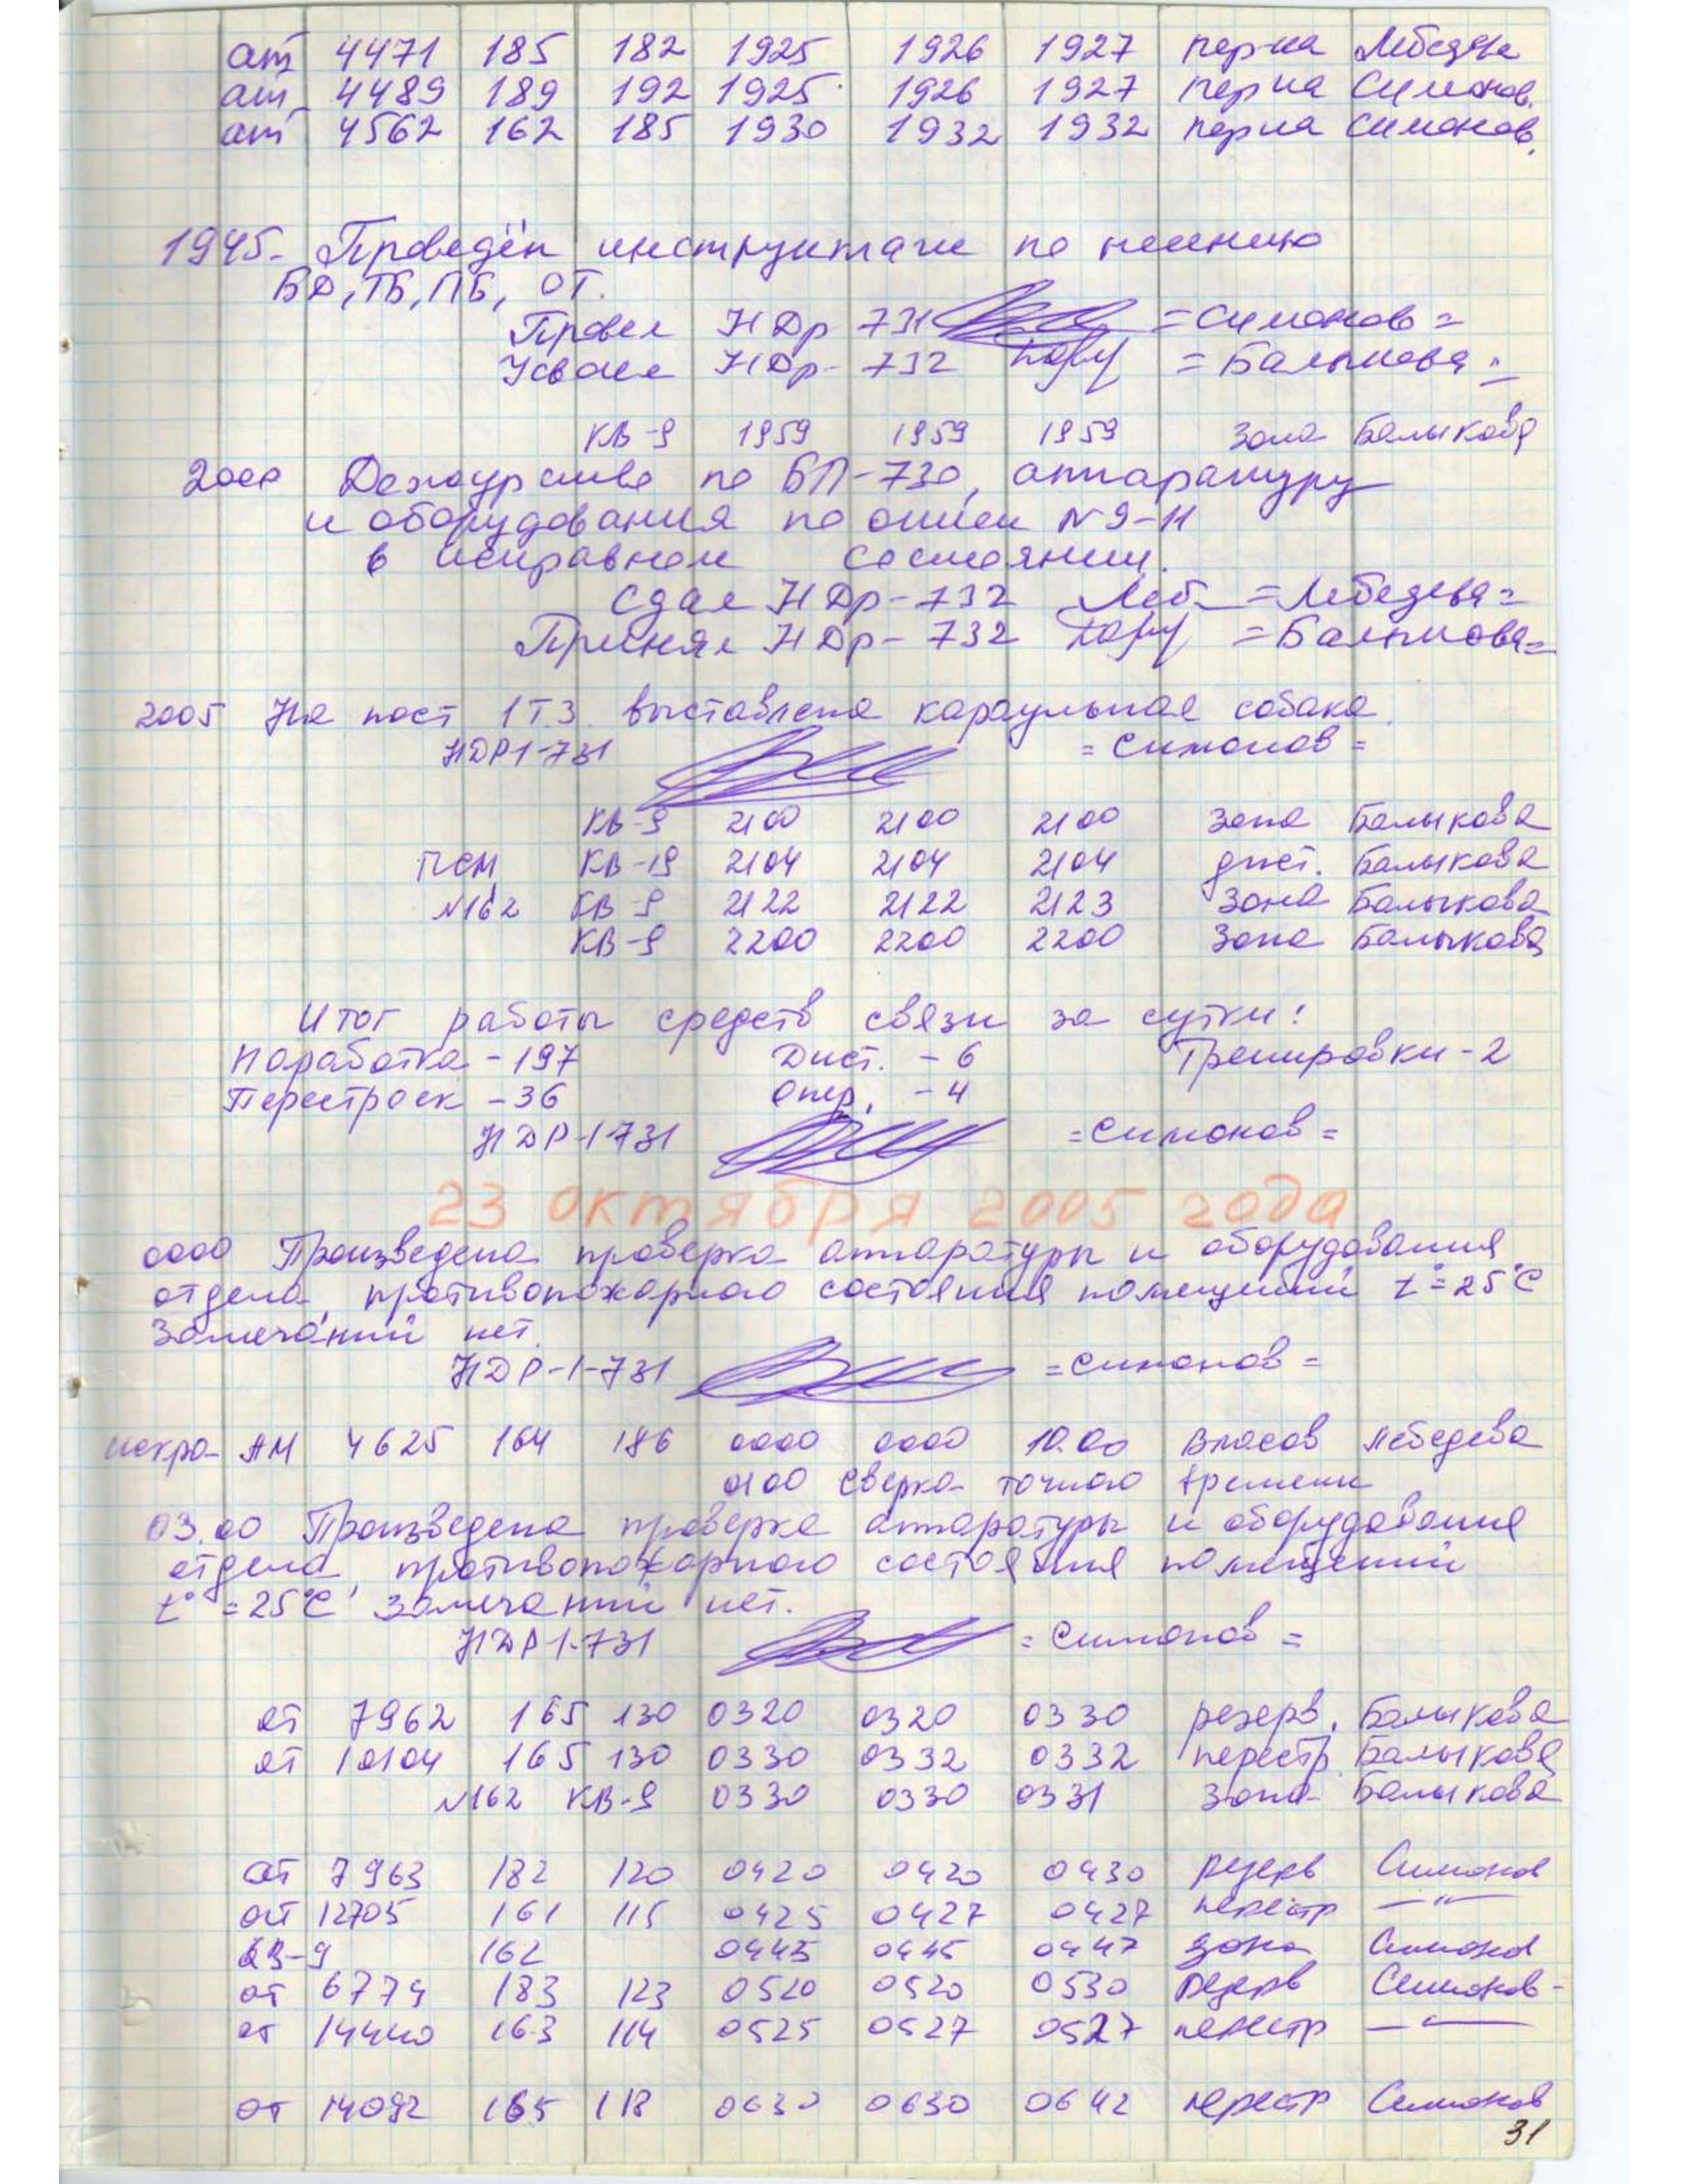 ат 4471 185 182 1925 1926 1927 пер-ка Лебедева
ат 4489 189 192 1925 1926 1927 пер-ка Симонов.
ат 4562 162 185 1930 1932 1932 пер-ка Симонов.
1945. Проведён инструктаж по несению
БД, ТБ, ПБ, ОТ.
Провел НДр 731 =Симонов=
Усвоил НДр-732 =Балыкова=
КВ-9 1959 1959 1959 Зона Балыкова
2000 Дежурство по БП-730, аппаратуру
и оборудования по описи N 9-11
в исправном состоянии.
Сдал НДр-732 Леб. =Лебедева=
Принял НДр-732 =Балыкова=
2005 На пост 1ТЗ выставлена караульная собака.
НДР1-731 =Симонов=
КВ-9 2100 2100 2100 Зона Балыкова
ПСМ КВ-19 2104 2104 2104 дист. Балыкова
N162 КВ-9 2122 2122 2123 Зона Балыкова
КВ-9 2200 2200 2200 Зона Балыкова
Итог работы средств связи за сутки:
Наработка - 197 Дист. - 6 Тренировки - 2
Перестроек - 36 Опер. - 4
НДР-1-731 =Симонов=
23 октября 2005 года
0000 Произведена проверка аппаратуры и оборудования
отдела, противопожарного состояния помещений t°=25°C
Замечаний нет.
НДР-1-731 =Симонов=
искра- АМ 4625 164 186 0000 0000 10.00 Власов Лебедева
0100 Сверка точного времени
03.00 Произведена проверка аппаратуры и оборудования
отдела, противопожарного состояния помещений
t°=25°C Замечаний нет.
НДР1-731 =Симонов=
ат 7962 165 130 0320 0320 0330 резерв. Балыкова
ат 10104 165 130 0330 0332 0332 перестр Балыкова
N162 КВ-9 0330 0330 0331 Зона Балыкова
ат 7963 182 120 0420 0420 0430 резерв Симонов
ат 12705 161 115 0425 0427 0427 перестр —"—
КВ-9 162 0445 0445 0447 зона Симонов
ат 6774 183 123 0520 0520 0530 резерв Симонов-
ат 14440 163 114 0525 0527 0527 перестр —"—
ат 14092 165 118 0630 0630 0642 перестр Симонов
31